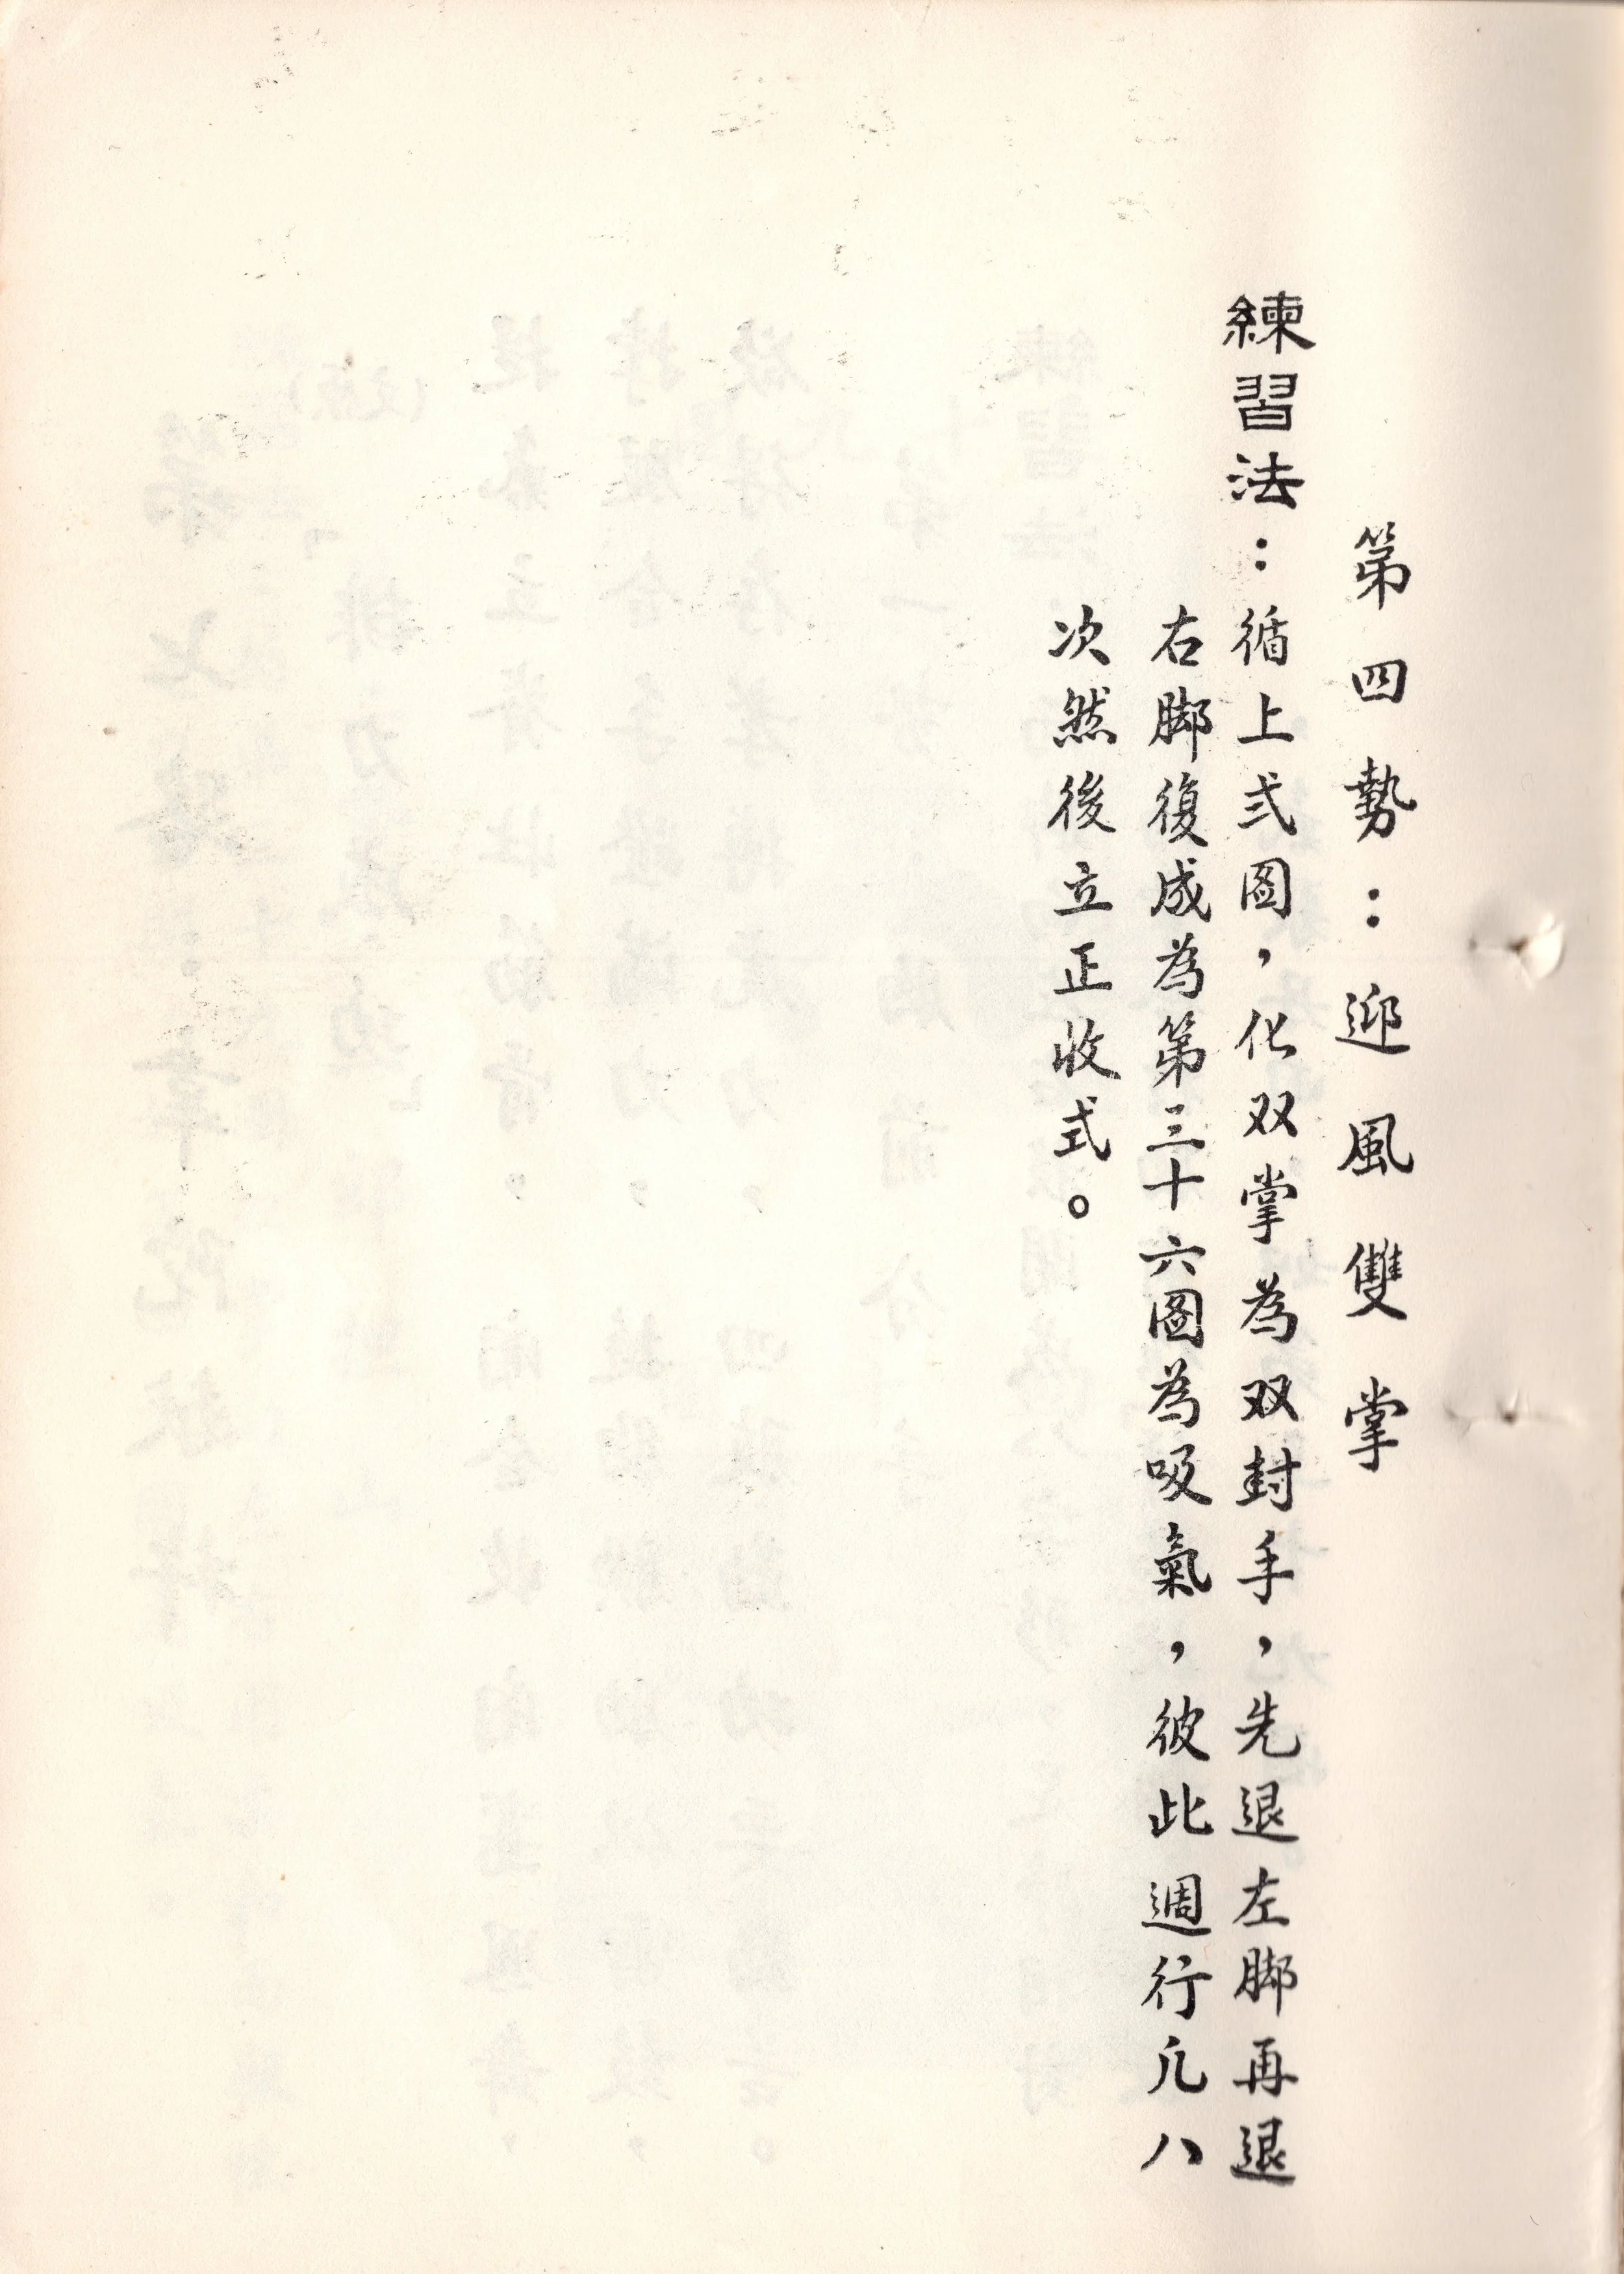 第四勢：迎風雙掌
練習法：循上式圖，化双掌為双封手，先退左脚再退
右脚復成為第三十六圖為吸氣，彼此週行凡八
次然後立正收式。